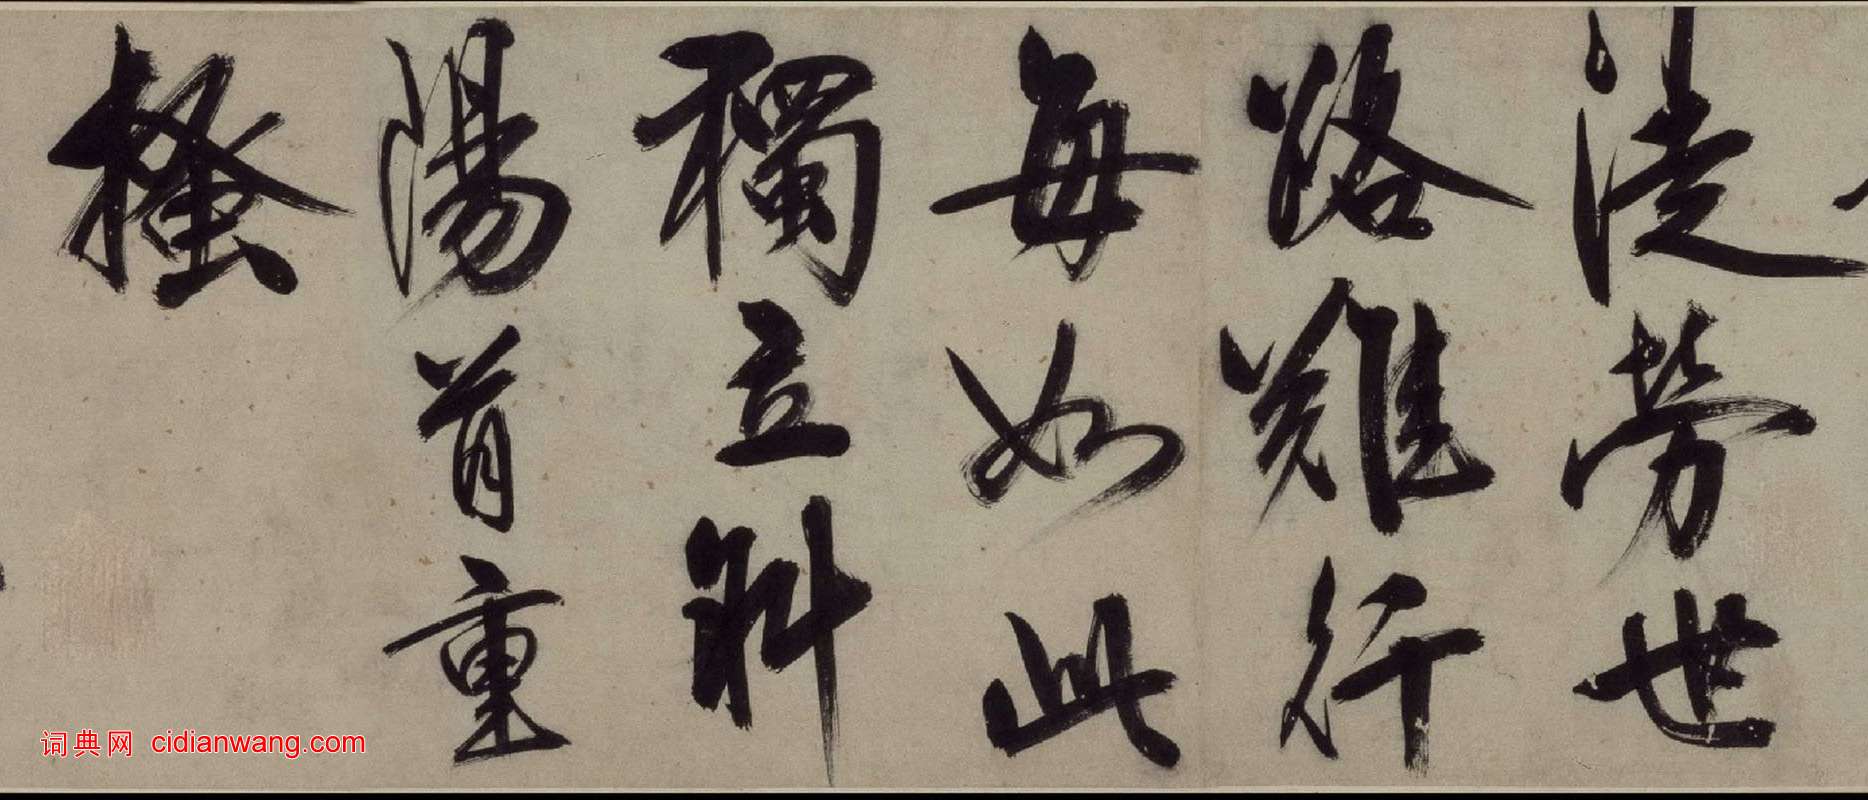 徒劳世
路難行
每如此
獨立斜
陽首重
搔
词典网 cidianwang.com